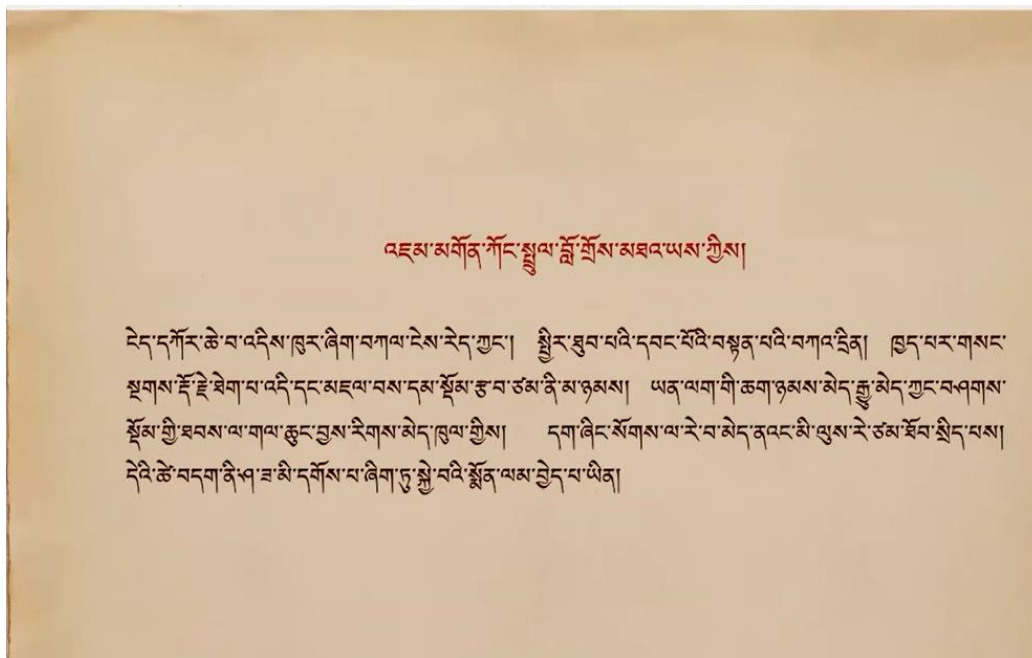 འཇམ་མགོན་ཀོང་སྤྲུལ་བློ་གྲོས་མཐའ་ཡས་ཀྱིས།
ངེད་དཀོར་ཆེ་བ་འདིས་ཁུར་ཞིག་བཀལ་ངེས་རེད་ཀྱང་། སྤྱིར་ཐུབ་པའི་དབང་པོའི་བསྟན་པའི་བཀའ་དྲིན། ཁྱད་པར་གསང་
སྔགས་རྡོ་རྗེ་ཐེག་པ་འདི་དང་མཇལ་བས་དམ་སྡོམ་རྩ་བ་ཙམ་ནི་མ་ཉམས། ཡན་ལག་གི་ཆག་ཉམས་མེད་རྒྱུ་མེད་ཀྱང་བཤགས་
སྡོམ་གྱི་ཐབས་ལ་གལ་ཆུང་བྱས་རིགས་མེད་ཁུལ་གྱིས། དག་ཞིང་སོགས་ལ་རེ་བ་མེད་ནའང་མི་ལུས་རེ་ཙམ་ཐོབ་སྲིད་པས།
དེའི་ཚེ་བདག་ནི་ཤ་ཟ་མི་དགོས་པ་ཞིག་ཏུ་སྐྱེ་བའི་སྨོན་ལམ་བྱེད་པ་ཡིན།